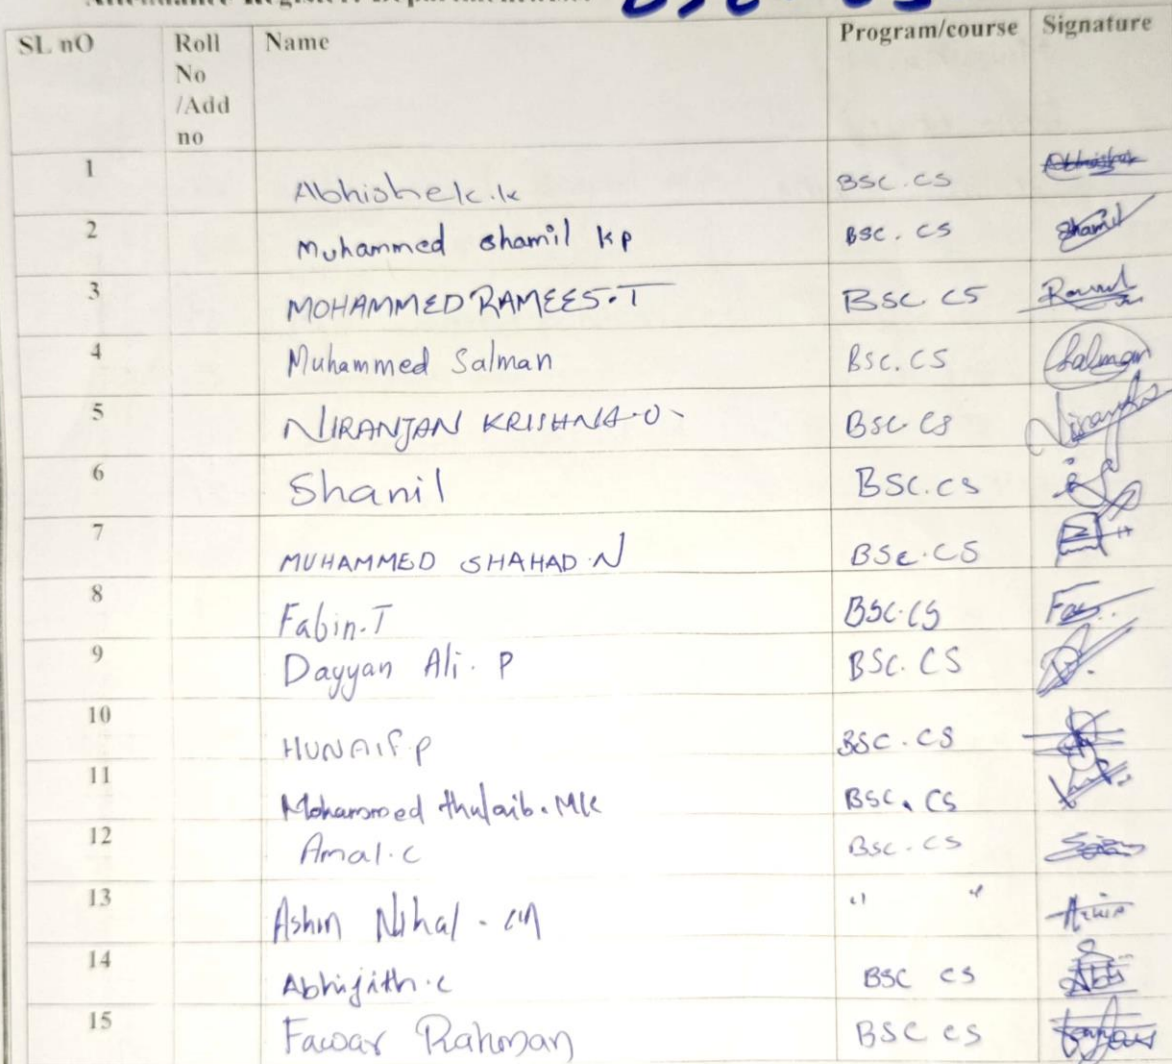 Attendance Register: Department BSC CS
SL nO Roll No /Add no Name Program/course Signature
1 Abhishek.k BSC.CS
2 Muhammed shamil kp BSC. CS Shamil
3 MOHAMMED RAMEES.T BSC. CS
4 Muhammed Salman BSC. CS Salman
5 NIRANJAN KRISHNA O BSC CS
6 Shanil BSC.CS
7 MUHAMMED SHAHAD.N BSC.CS
8 Fabin.T BSC.CS
9 Dayyan Ali. P BSC. CS
10 HUNAIF.P BSC.CS
11 Mohammed thulaib.MK BSC. CS
12 Amal.C BSC.CS
13 Ashin Nihal - CM " "
14 Abhijith.c BSC CS
15 Fawar Rahman BSC CS